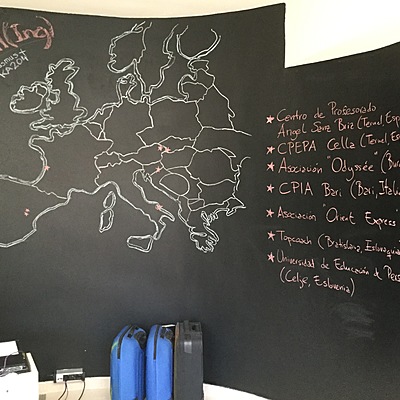 (Ing)
★ Centro de Profesorado
Ángel Sanz Briz (Teruel, Esp
★ CPEPA Cella (Teruel, Es
★ Asociación "Odyssée" (Bu
★ CPIA Bari (Bari, Italia
★ Asociacion "Orient Express"
★ Topcoach (Bratislava, Eslovaquia
★ Universidad de Educación de Pers
(Celje, Eslovenia)